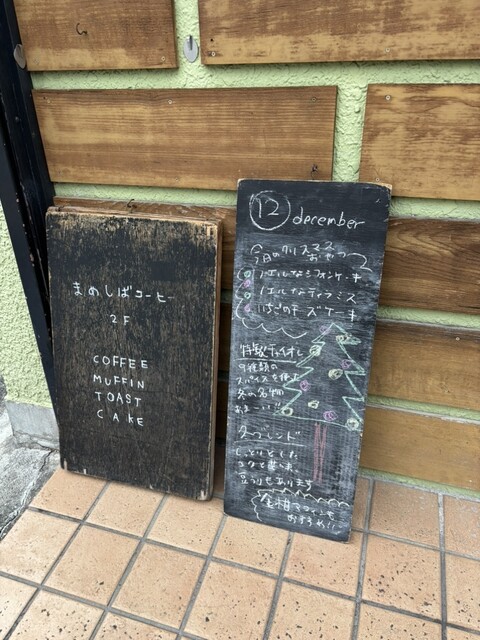 まめしばコーヒー
2F
COFFEE
MUFFIN
TOAST
CAKE
12 december
今月のクリスマス
おやつ
ノエルなシフォンケーキ
ノエルなティラミス
いちごのチーズケーキ
特製チャイオレ
9種類の
スパイスを使った
冬の名物
あまーい!!
冬ブレンド
しっとりとした
コクと甘い
豆うりもあります
全粒マフィンも
おすすめ!!